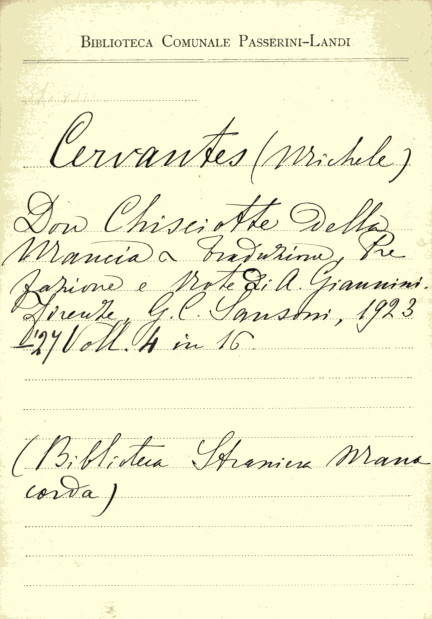 BIBLIOTECA COMUNALE PASSERINI-LANDI
Cervantes (Michele)
Don Chisciotte della
Mancia Traduzione, Pre
fazione e Note di A. Giannini.
Firenze, G. C. Sansoni, 1923
-27 Voll. 4 in 16.
(Biblioteca Straniera Mana
corda)